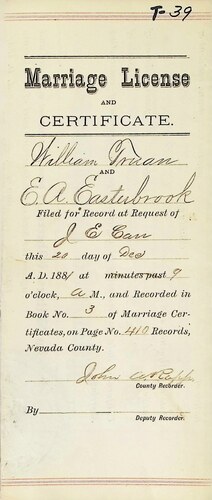 T-39
Marriage License
AND
CERTIFICATE.
William Truan
AND
E. A. Easterbrook
Filed for Record at Request of
J E Carr
this 20 day of Dec
A. D. 1881 at minutes past 9
o'clock, A M., and Recorded in
Book No. 3 of Marriage Cer-
tificates, on Page No. 410 Records,
Nevada County.
John A. Rapp
County Recorder.
By
Deputy Recorder.